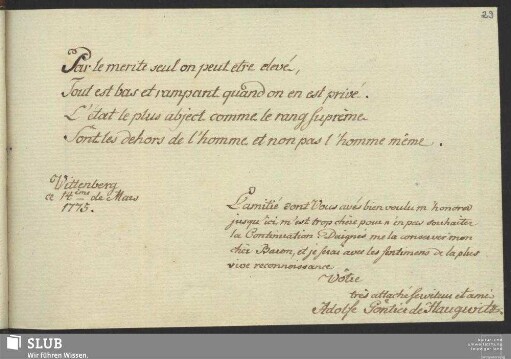 23
Par le merite seul on peut etre elevé,
Tout est bas et rampant quand on en est privé.
L'état le plus abject comme le rang suprême
Sont les dehors de l'homme et non pas l'homme même.
Vittenberg
ce 14eme de Mars
1775.
L'amitié dont Vous avés bien voulu m'honorer
jusqu'ici m'est trop chère pour n'en pas souhaiter
la Continuation Daignés me la conserver mon
cher Baron, et je serai avec les sentimens de la plus
vive reconnoissance
Vôtre
très attaché serviteur et ami
Adolfe de Haugwitz
SLUB
Wir führen Wissen.